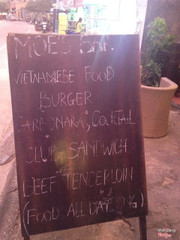 MOE'S BAR
VIETNAMESE FOOD
BURGER
CARBONARA, COCKTAIL
CLUB SANDWICH
BEEF TENDERLOIN
(FOOD ALL DAY